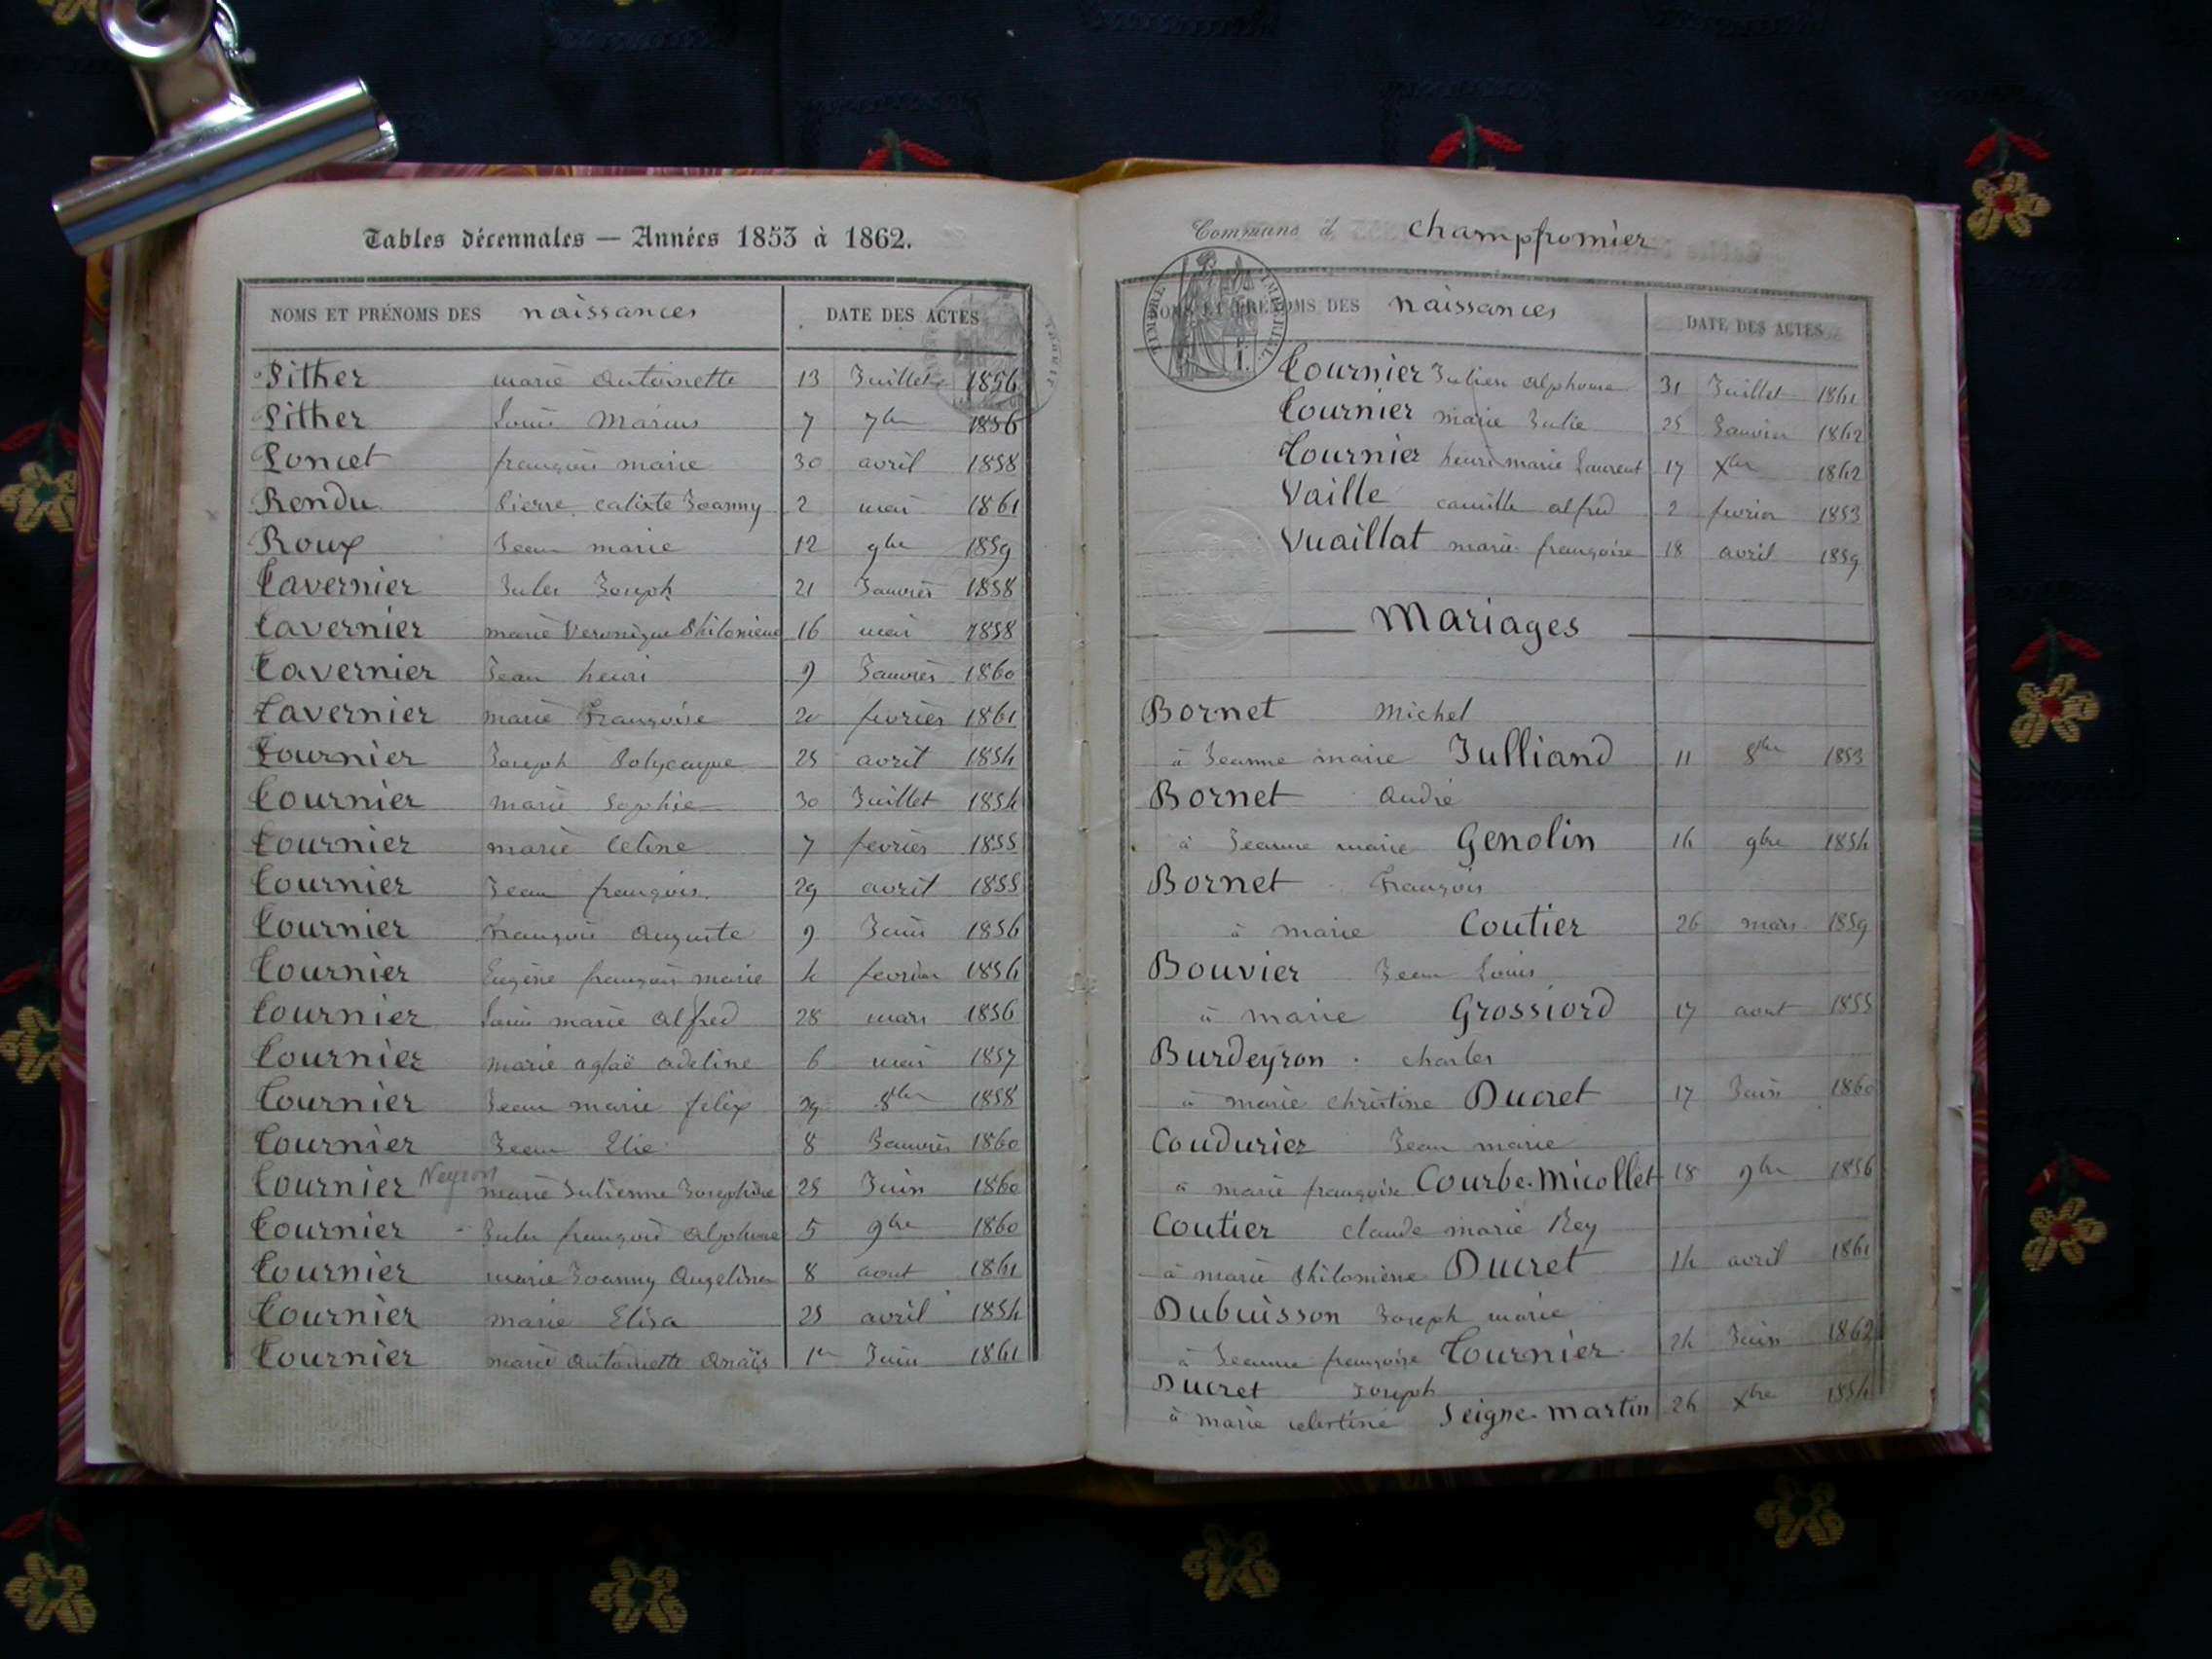 Tables décennales — Années 1853 à 1862.
NOMS ET PRÉNOMS DES naissances DATE DES ACTES
Pither marie Antoinette 13 Juillet 1856
Pither Louis Marius 7 7bre 1856
Poncet françois marie 30 avril 1858
Rendu Pierre calixte Joanny 2 mai 1861
Roux Jean marie 12 9bre 1859
Tavernier Jules Joseph 21 Janvier 1858
Tavernier marie Veronique Philomène 16 mai 1858
Tavernier Jean henri 9 Janvier 1860
Tavernier marie Françoise 20 fevrier 1861
Tournier Joseph Polycarpe 25 avril 1854
Tournier marie Sophie 30 Juillet 1854
Tournier marie Celine 7 fevrier 1855
Tournier Jean françois 29 avril 1855
Tournier François Auguste 9 1856
Tournier Eugène françois marie 4 fevrier 1856
Tournier Louis marie Alfred 28 mars 1856
Tournier marie aglaë adeline 6 mai 1857
Tournier Jean marie felix 29 8bre 1858
Tournier Jean Elie 8 Janvier 1860
Tournier Neyron marie Julienne Josephine 25 Juin 1860
Tournier Jules françois Alphonse 5 9bre 1860
Tournier marie Joanny Angelina 8 aout 1861
Tournier marie Elisa 25 avril 1854
Tournier marie Antoinette Anaïs 1er Juin 1861
Commune d champfromier
TIMBRE IMPERIAL
NOMS ET PRÉNOMS DES naissances DATE DES ACTES
Tournier Julien alphonse 31 Juillet 1861
Tournier marie Julie 25 Janvier 1862
Tournier henri marie Laurent 17 Xbre 1862
Vaille camille alfred 2 fevrier 1853
Vuaillat marie françoise 18 avril 1859
Mariages
Bornet Michel
à Jeanne marie Julliand 11 8bre 1853
Bornet André
à Jeanne marie Genolin 14 9bre 1854
Bornet François
à marie Coutier 26 mars 1859
Bouvier Jean Louis
à marie Grossiord 17 aout 1855
Burdeyron charles
à marie christine Ducret 17 Juin 1860
Coudurier Jean marie
à marie françoise Courbe-Micollet 18 9bre 1856
Coutier claude marie Rey
à marie Philomène Ducret 14 avril 1861
Dubuisson Joseph marie
à Jeanne françoise Tournier 24 Juin 1862
Ducret Joseph
à marie celestine Seigne-martin 26 Xbre 1854